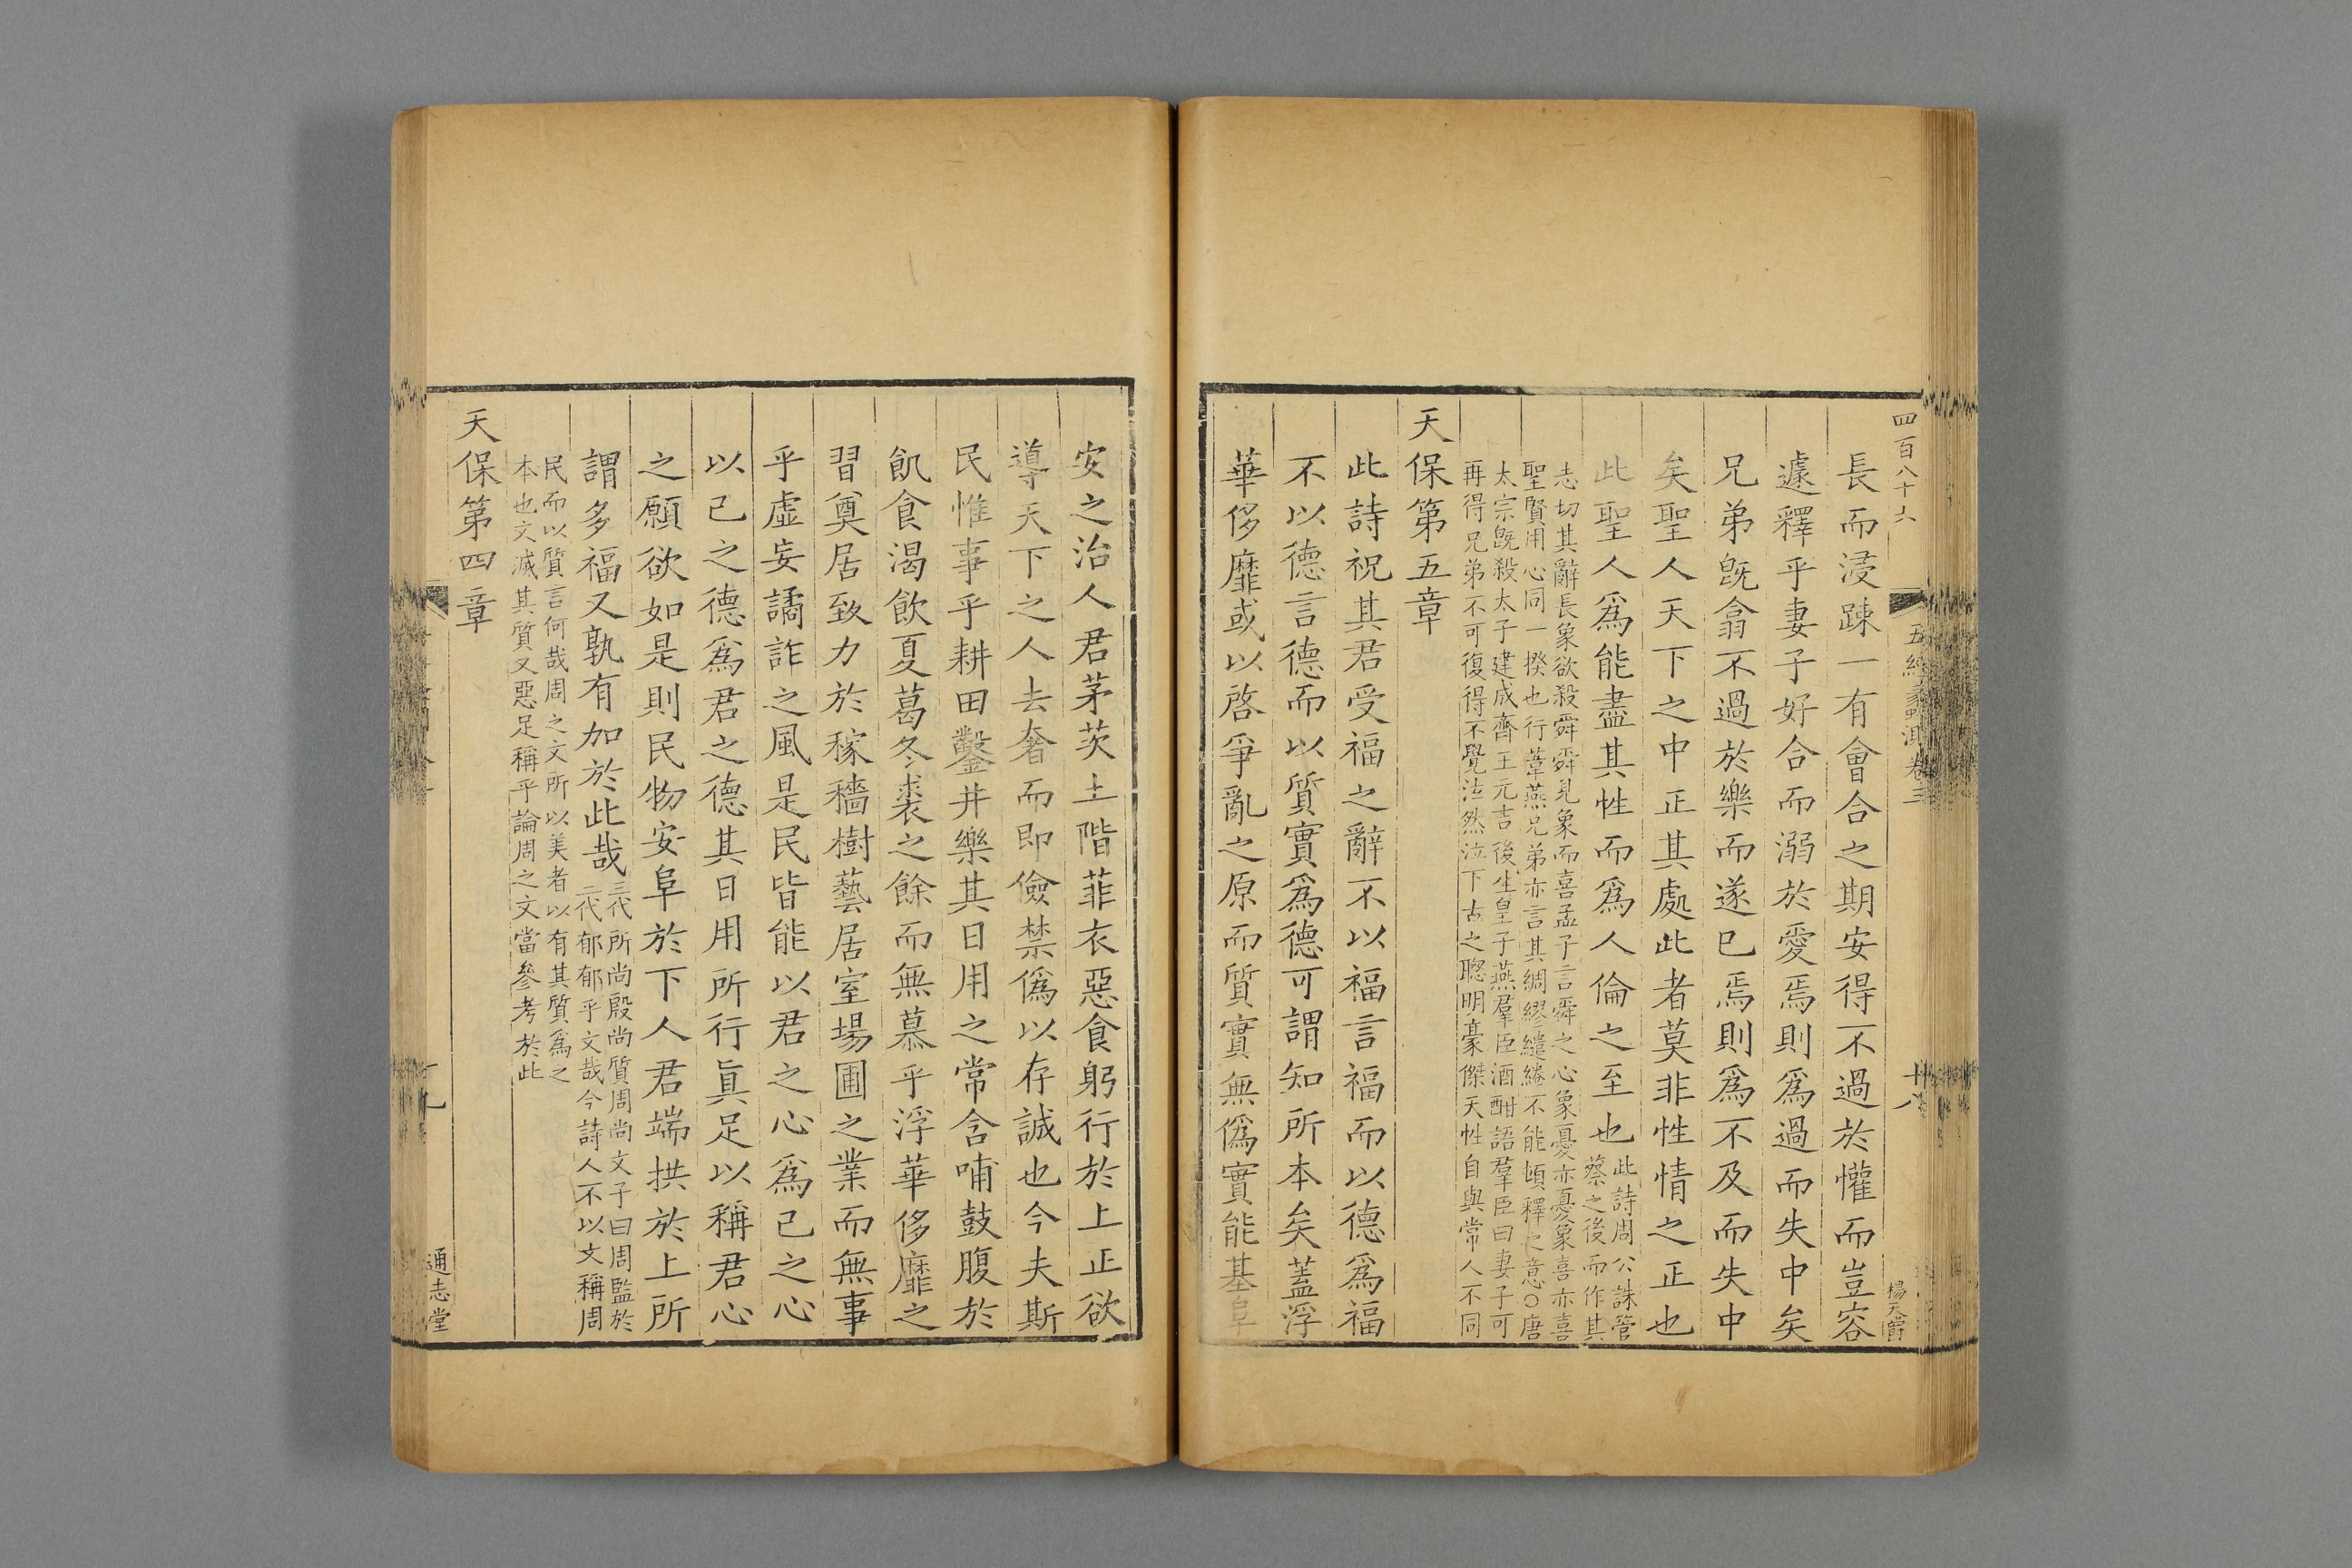 四百八十六
五經蠡測卷三
十八
楊天爵
長而浸踈一有會合之期安得不過於懽而豈容
遽釋乎妻子好合而溺於愛焉則為過而失中矣
兄弟旣翕不過於樂而遂已焉則爲不及而失中
矣聖人天下之中正其處此者莫非性情之正也
此聖人爲能盡其性而爲人倫之至也此詩周公誅管
蔡之後而作其
志切其辭長象欲殺舜舜見象而喜孟子言舜之心象憂亦憂象喜亦喜
聖賢用心同一揆也行葦燕兄弟亦言其綢繆繾綣不能頓釋之意○唐
太宗旣殺太子建成齊王元吉後生皇子燕羣臣酒酣語羣臣曰妻子可
再得兄弟不可復得不覺泫然泣下古之聰明豪傑天性自與常人不同
天保第五章
此詩祝其君受福之辭不以福言福而以德爲福
不以德言德而以質實爲德可謂知所本矣蓋浮
華侈靡或以啓爭亂之原而質實無僞實能基阜
安之治人君茅茨土階菲衣惡食躬行於上正欲
導天下之人去奢而即儉禁僞以存誠也今夫斯
民惟事乎耕田鑿井樂其日用之常含哺鼓腹於
飢食渴飲夏葛冬裘之餘而無慕乎浮華侈靡之
習奠居致力於稼穡樹藝居室場圃之業而無事
乎虛妄譎詐之風是民皆能以君之心爲己之心
以己之德爲君之德其日用所行眞足以稱君心
之願欲如是則民物安阜於下人君端拱於上所
謂多福又孰有加於此哉三代所尚殷尚質周尚文子曰周監於
二代郁郁乎文哉今詩人不以文稱周
民而以質言何哉周之文所以美者以有其質爲之
本也文滅其質又惡足稱乎論周之文當參考於此
天保第四章
通志堂